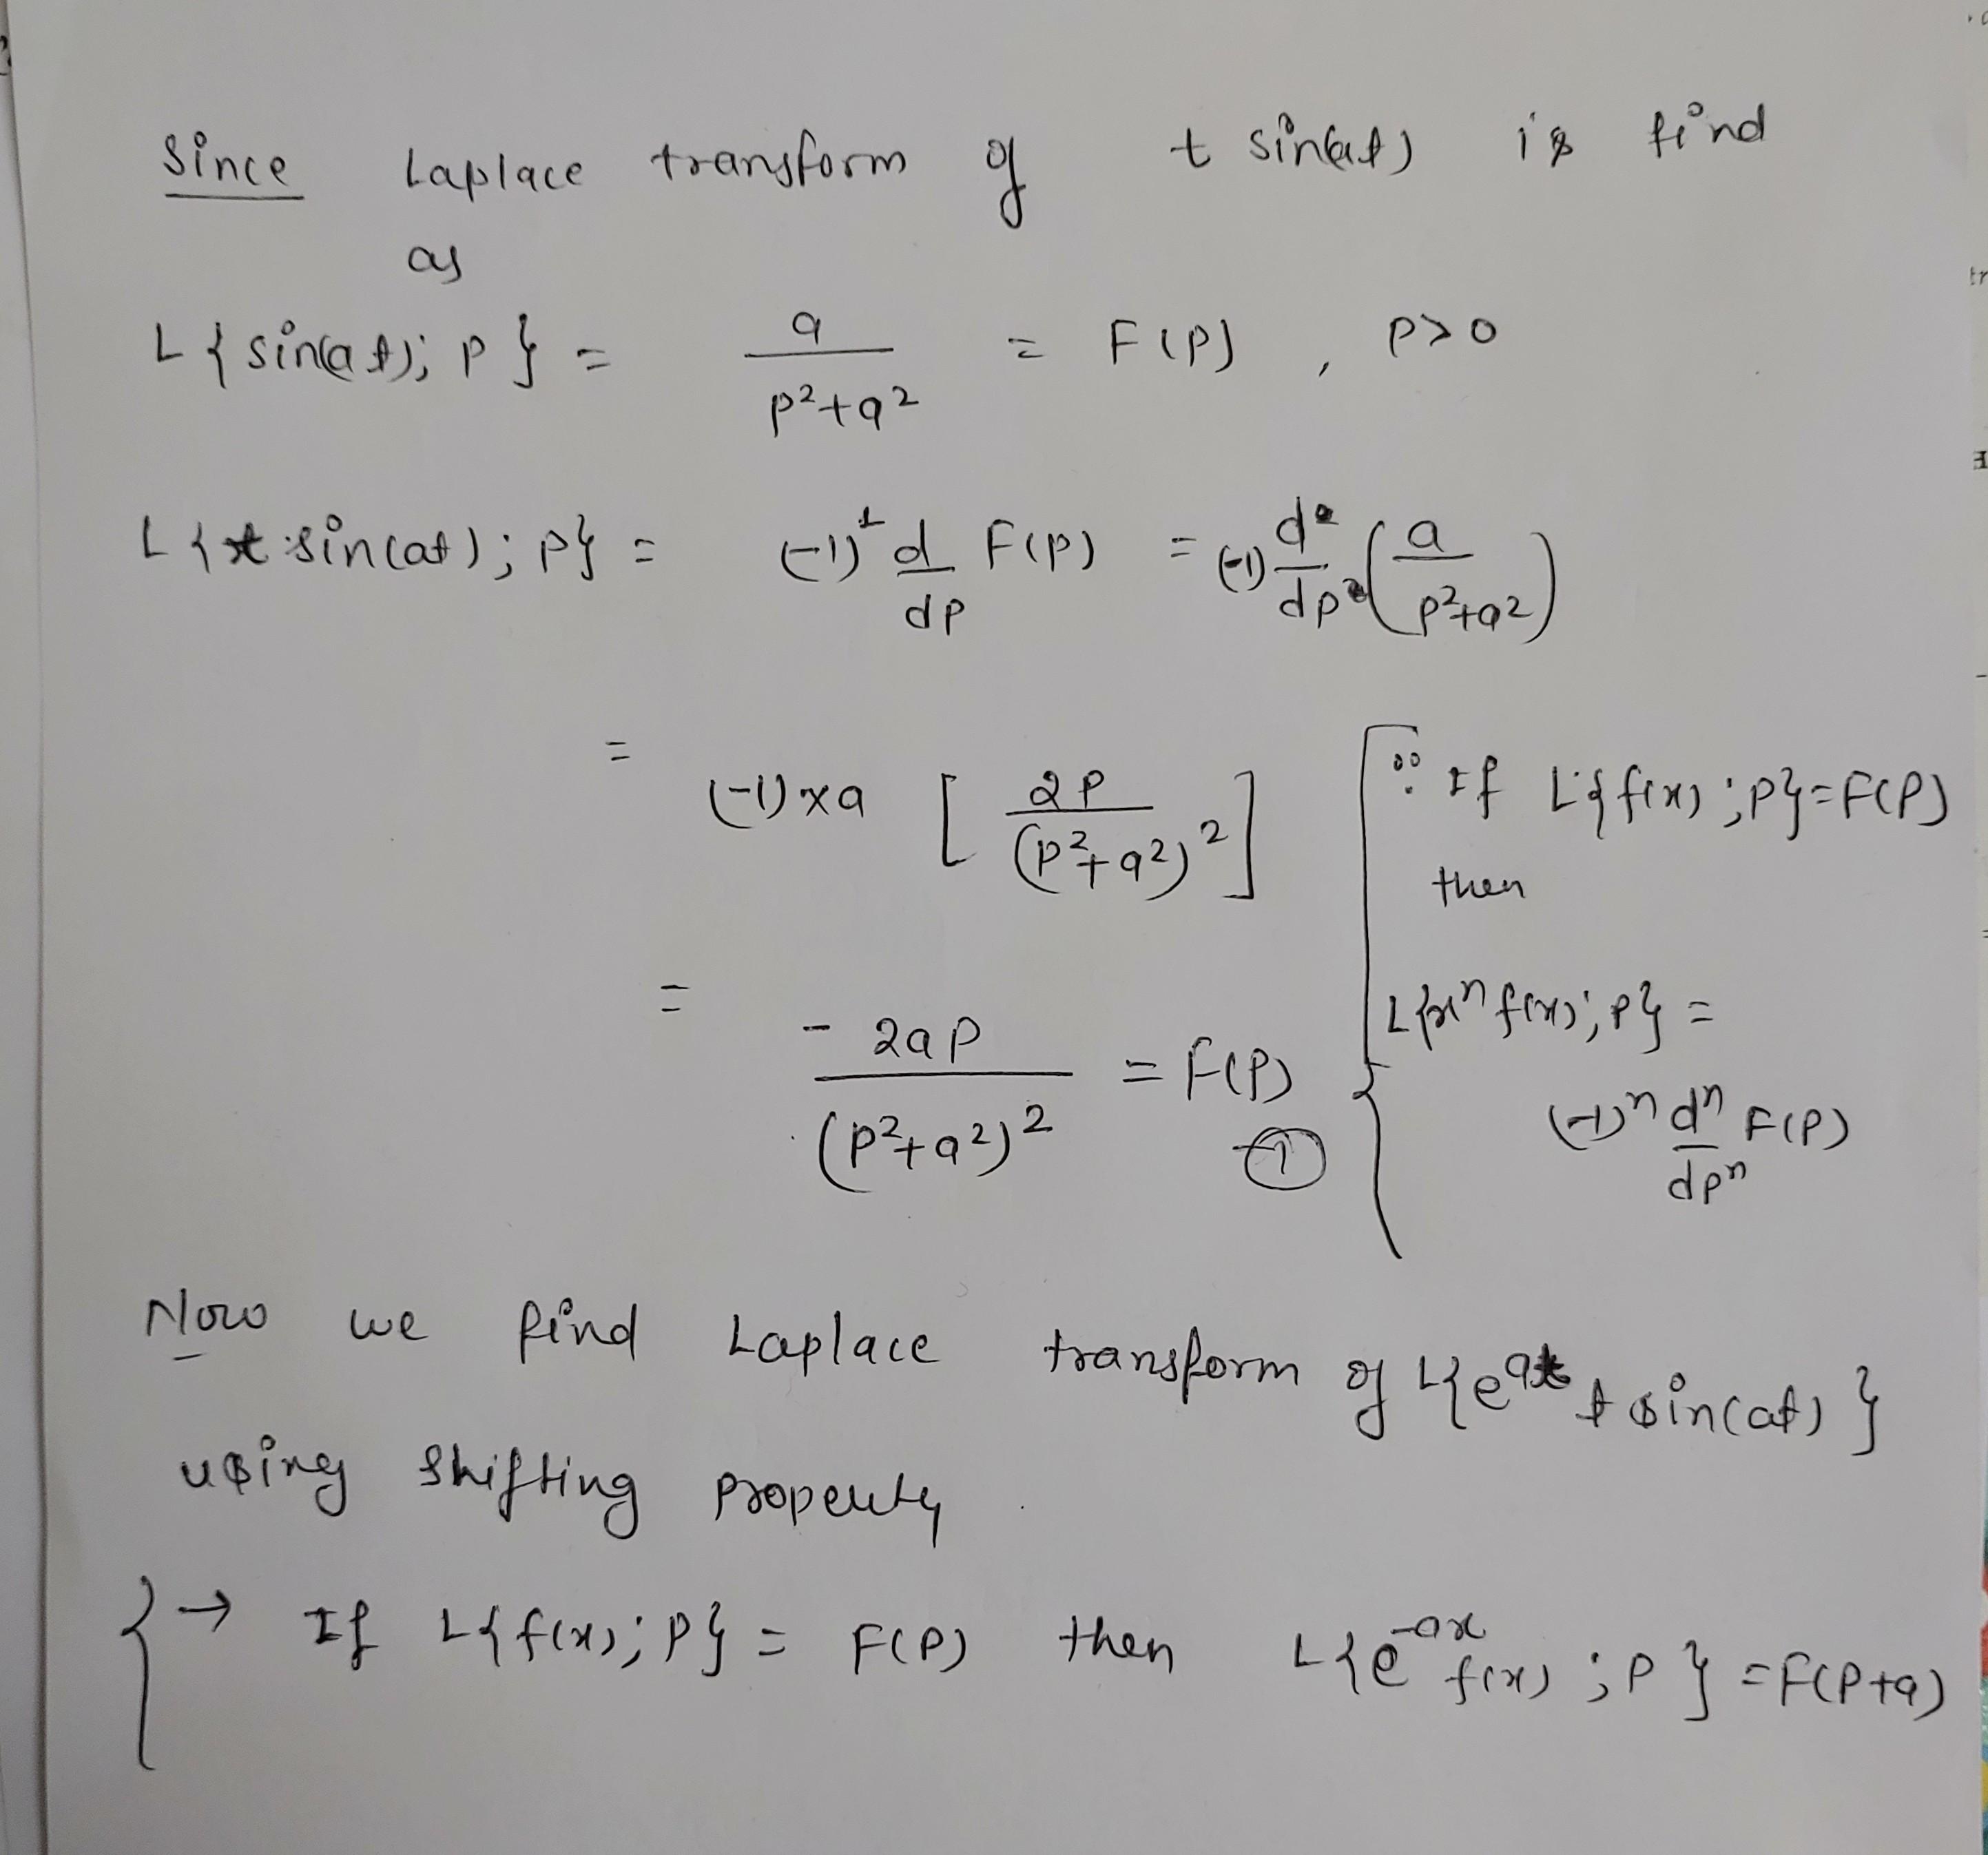 Since Laplace transform of t sin(at) is find
as
L{sin(at); p} = a/(p²+a²) = F(p) , p>0
L{t sin(at); p} = (-1)¹ d/dp F(p) = (-1) d/dp (a/(p²+a²))
= (-1)×a [2p/(p²+a²)²]
= -2ap/(p²+a²)² = F(p) ①
[∵ If L{f(x); p} = F(p)
then
L{xⁿ f(x); p} =
(-1)ⁿ dⁿ/dpⁿ F(p)
Now we find Laplace transform of L{e^at t sin(at)}
using shifting property
{→ If L{f(x); p} = F(p) then L{e^-ax f(x); p} = F(p+a)